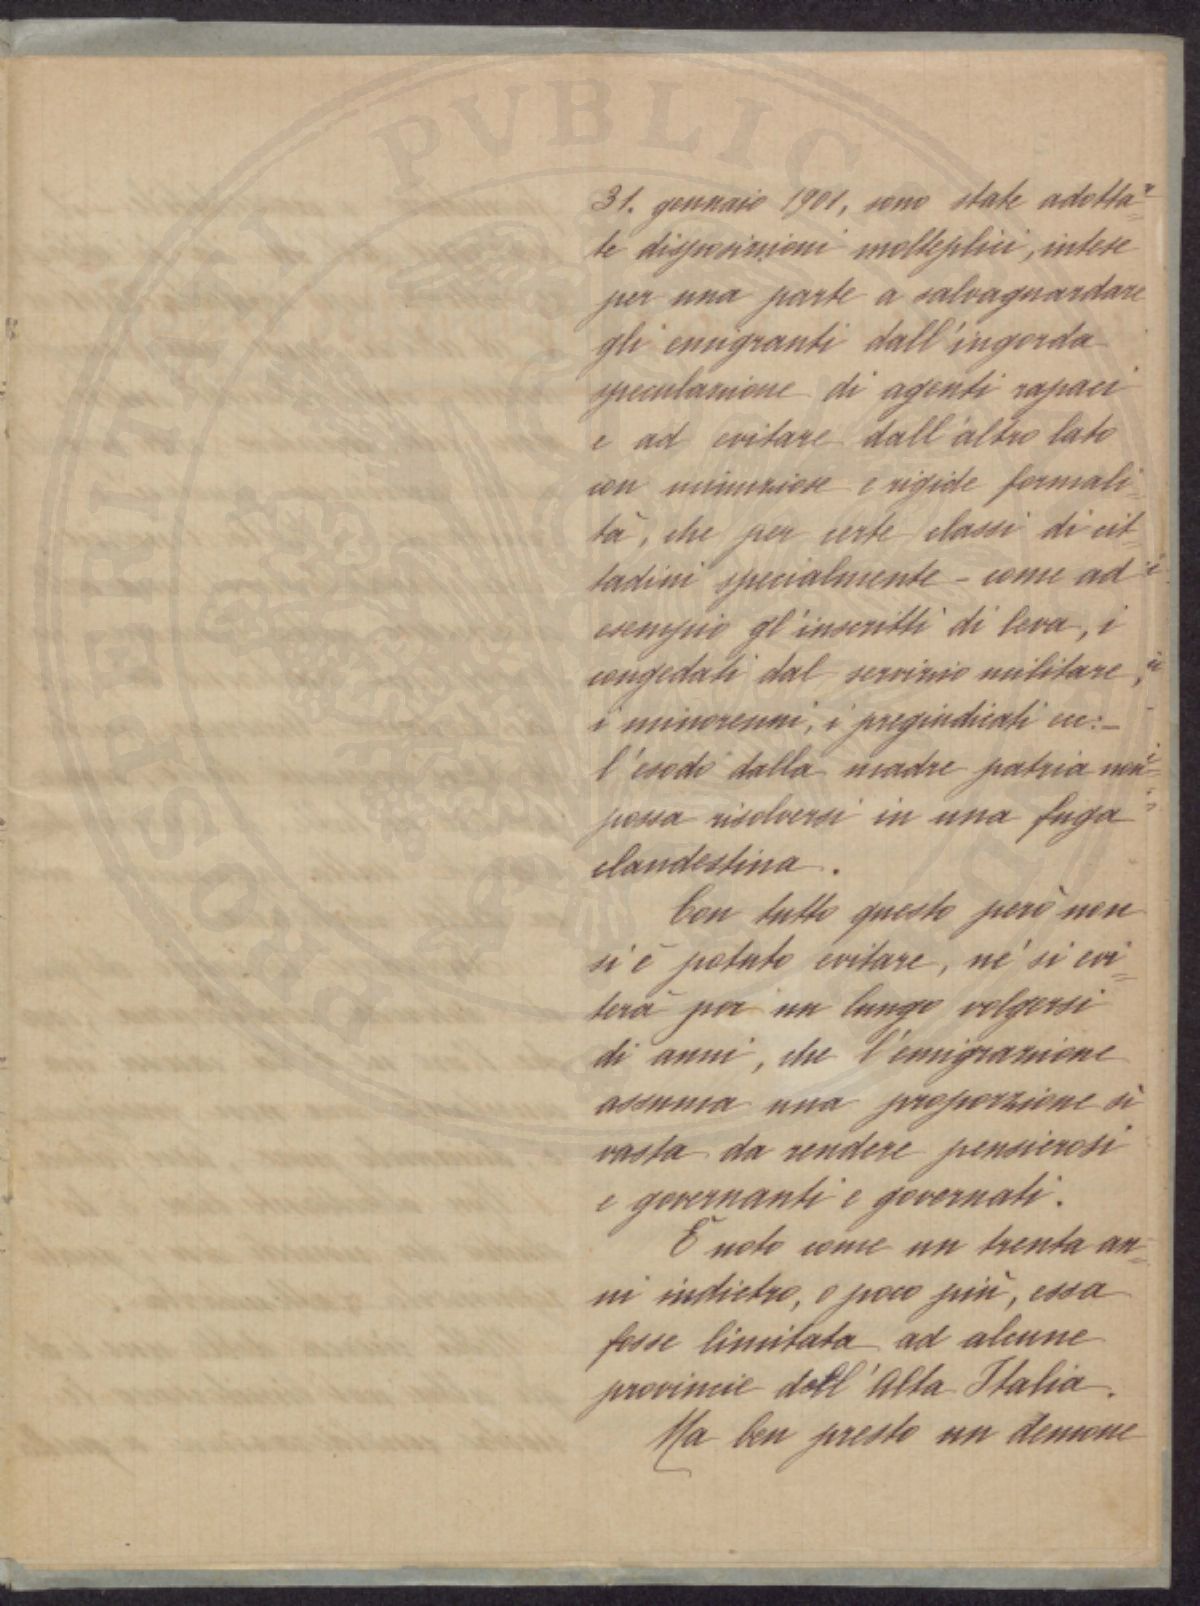 31. gennaio 1901, sono state adotta=
te disposizioni molteplici, intese
per una parte a salvaguardare
gli emigranti dall'ingorda
speculazione di agenti rapaci
e ad evitare dall'altro lato
con minuziose e rigide formali=
tà, che per certe classi di cit=
tadini specialmente - come ad
esempio gl'inscritti di leva, i
congedati dal servizio militare,
i minorenni, i pregiudicati ecc: -
l'esodo dalla madre patria non
possa risolversi in una fuga
clandestina.
Con tutto questo però non
si è potuto evitare, né si evi=
terà per un lungo volgersi
di anni, che l'emigrazione
assuma una proporzione sì
vasta da rendere pensierosi
e governanti e governati.
È noto come un trenta an=
ni indietro, o poco più, essa
fosse limitata ad alcune
provincie dell'Alta Italia.
Ma ben presto un demone